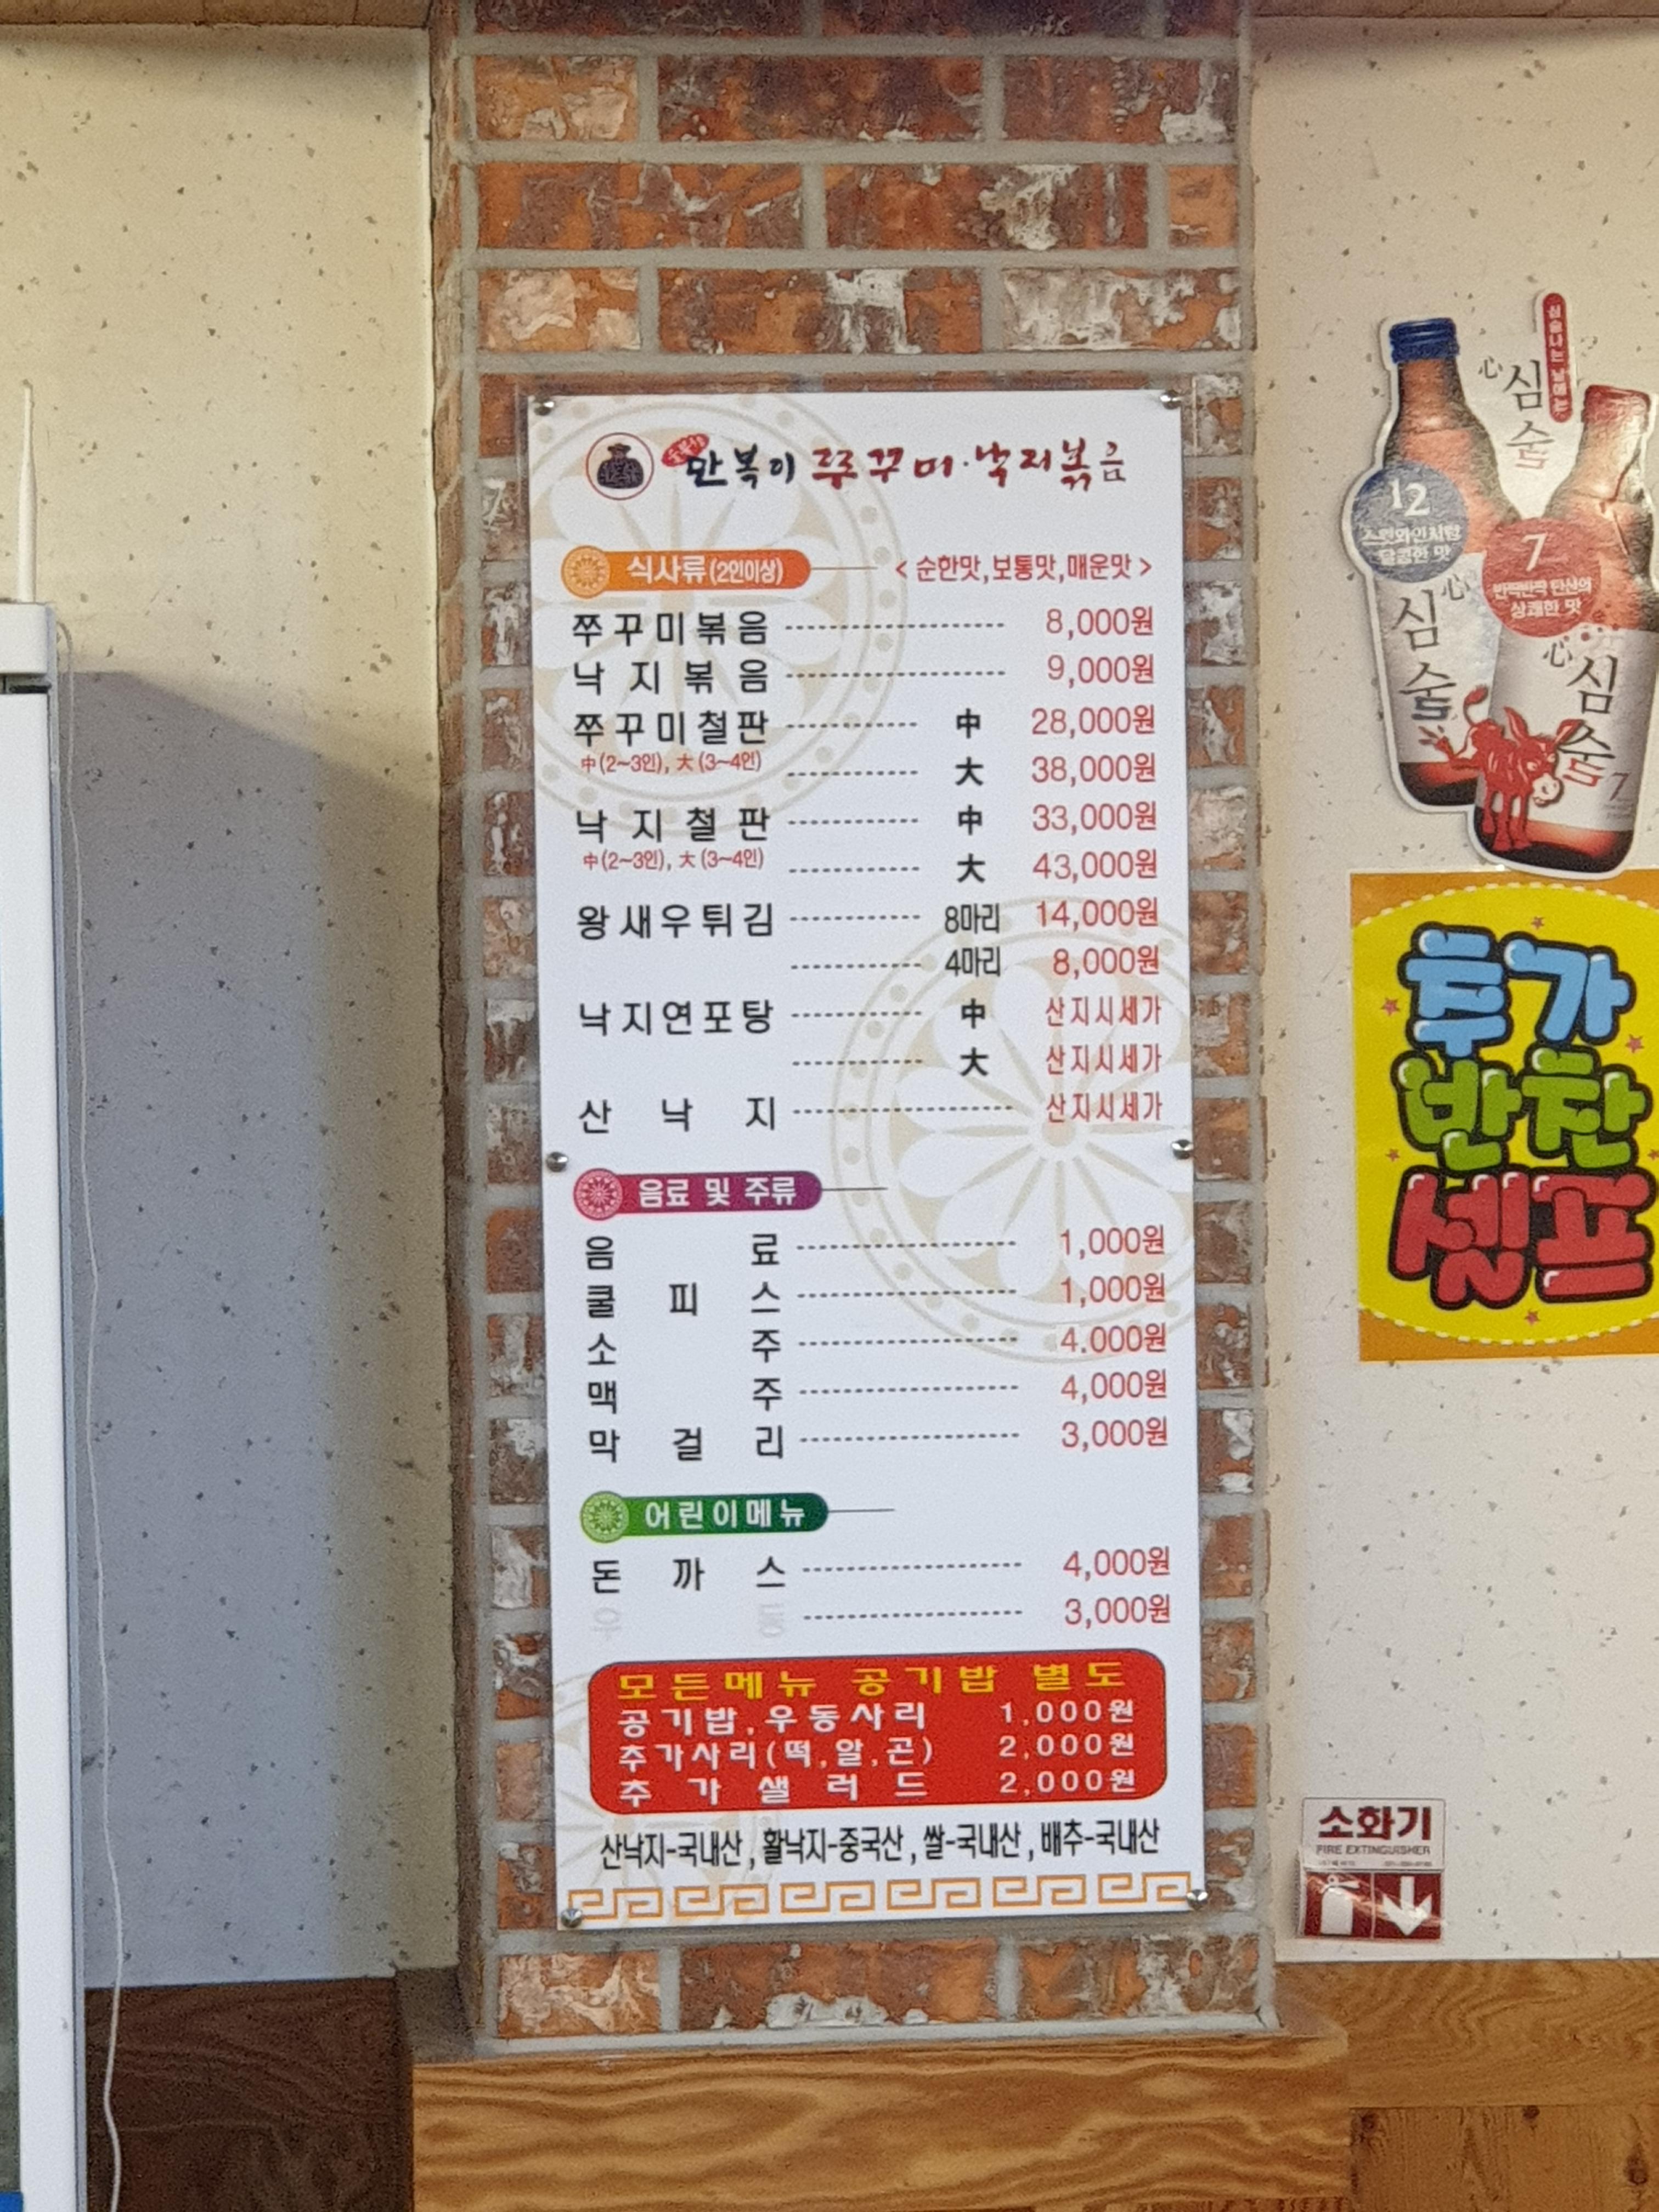 만복이 쭈꾸미·낙지볶음
식사류(2인이상) < 순한맛,보통맛,매운맛 >
쭈꾸미볶음 8,000원
낙지볶음 9,000원
쭈꾸미철판 中 28,000원
中(2~3인), 大(3~4인) 大 38,000원
낙지철판 中 33,000원
中(2~3인), 大(3~4인) 大 43,000원
왕새우튀김 8마리 14,000원
4마리 8,000원
낙지연포탕 中 산지시세가
大 산지시세가
산낙지 산지시세가
음료 및 주류
음료 1,000원
쿨피스 1,000원
소주 4.000원
맥주 4,000원
막걸리 3,000원
어린이메뉴
돈까스 4,000원
우동 3,000원
모든메뉴 공기밥 별도
공기밥,우동사리 1,000원
추가사리(떡,알,곤) 2,000원
추가샐러드 2,000원
산낙지-국내산, 활낙지-중국산, 쌀-국내산, 배추-국내산
심술나는 날에는
心 심술
12
스윗와인처럼
달콤한 맛
心 심술
7
반짝반짝 탄산의
상쾌한 맛
心 심술
7
추가
반찬
셀프
소화기
FIRE EXTINGUISHER